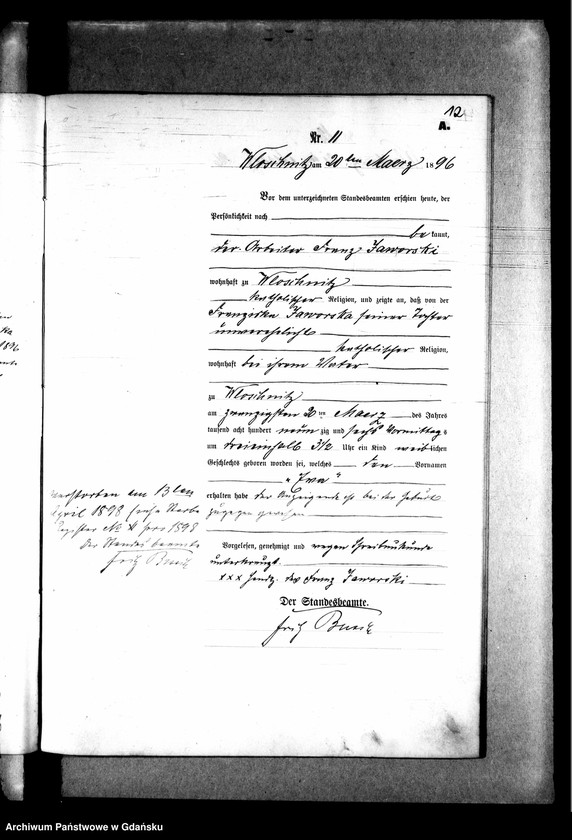 12
A.
Nr. 11
Wloschnitz am 20ten Maerz 1896
Vor dem unterzeichneten Standesbeamten erschien heute, der
Persönlichkeit nach
be kannt,
der Arbeiter Franz Jaworski
wohnhaft zu Wloschnitz
katholischer Religion, und zeigte an, daß von der
Franziska Jaworska seiner Tochter
unverehelicht
katholischer Religion,
wohnhaft bei ihrem Vater
zu Wloschnitz
am zwanzigsten 20ten Maerz des Jahres
tausend acht hundert neunzig und sechs Vormittag
um dreieinhalb 3 1/2 Uhr ein Kind weiblichen
Geschlechts geboren worden sei, welches den Vornamen
"Ewa"
erhalten habe der Anzeigende ist bei der Geburt
zugegen gewesen
Vorgelesen, genehmigt und wegen Schreibunkunde
unterkreuzt.
xxx Handz. des Franz Jaworski
Der Standesbeamte.
Fritz
verstorben am 13ten
April 1898 Sterbe
Register No 4 pro 1898
Der Standesbeamte
Fritz
1896
Archiwum Państwowe w Gdańsku